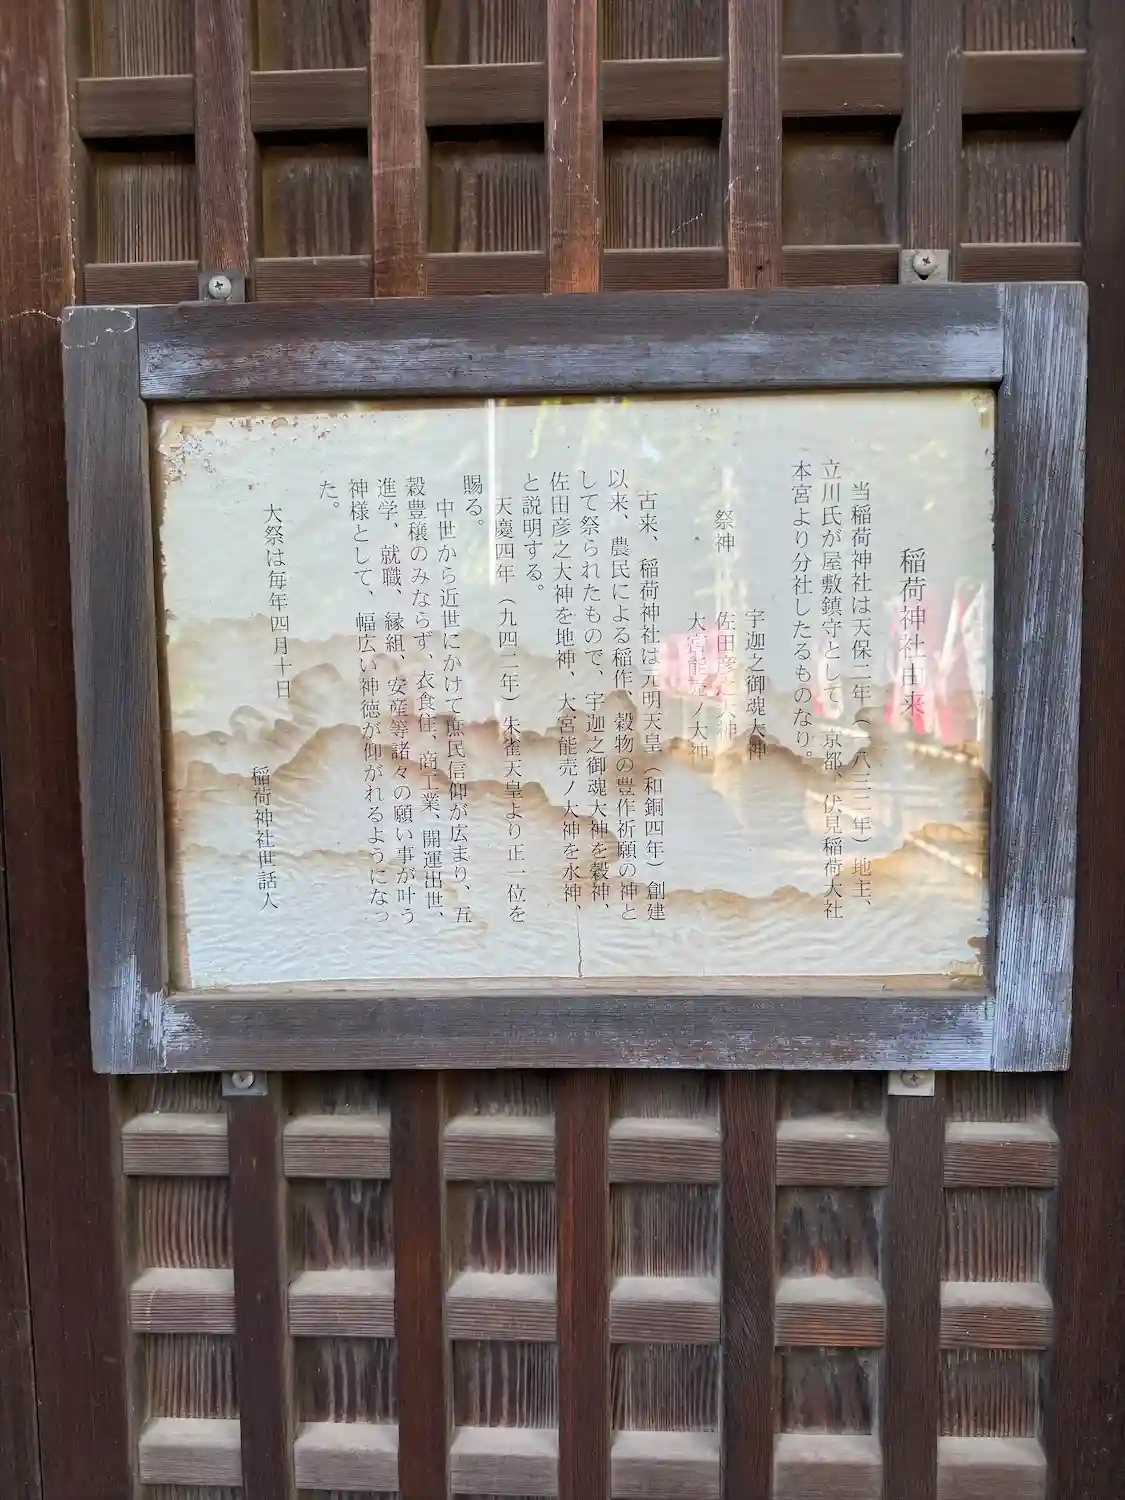 稲荷神社由来
当稲荷神社は天保二年(一八三二年)地主、
立川氏が屋敷鎮守として、京都、伏見稲荷大社
本宮より分社したるものなり。
宇迦之御魂大神
祭神 佐田彦之大神
大宮能売ノ大神
古来、稲荷神社は元明天皇(和銅四年)創建
以来、農民による稲作、穀物の豊作祈願の神と
して祭られたもので、宇迦之御魂大神を穀神、
佐田彦之大神を地神、大宮能売ノ大神を水神、
と説明する。
天慶四年(九四二年)朱雀天皇より正一位を
賜る。
中世から近世にかけて庶民信仰が広まり、五
穀豊穣のみならず、衣食住、商工業、開運出世、
進学、就職、縁組、安産等諸々の願い事が叶う
神様として、幅広い神徳が仰がれるようになっ
た。
大祭は毎年四月十日
稲荷神社世話人